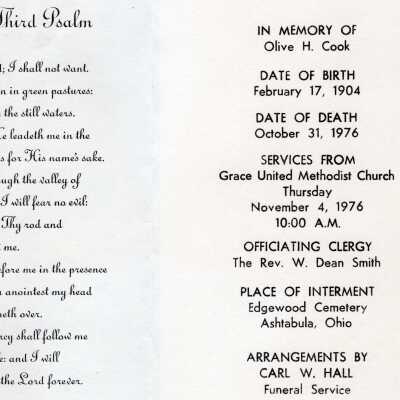 Third Psalm
; I shall not want.
n in green pastures:
the still waters.
e leadeth me in the
s for His name's sake.
ugh the valley of
I will fear no evil:
Thy rod and
me.
fore me in the presence
anointest my head
neth over.
rcy shall follow me
e: and I will
the Lord forever.
IN MEMORY OF
Olive H. Cook
DATE OF BIRTH
February 17, 1904
DATE OF DEATH
October 31, 1976
SERVICES FROM
Grace United Methodist Church
Thursday
November 4, 1976
10:00 A.M.
OFFICIATING CLERGY
The Rev. W. Dean Smith
PLACE OF INTERMENT
Edgewood Cemetery
Ashtabula, Ohio
ARRANGEMENTS BY
CARL W. HALL
Funeral Service